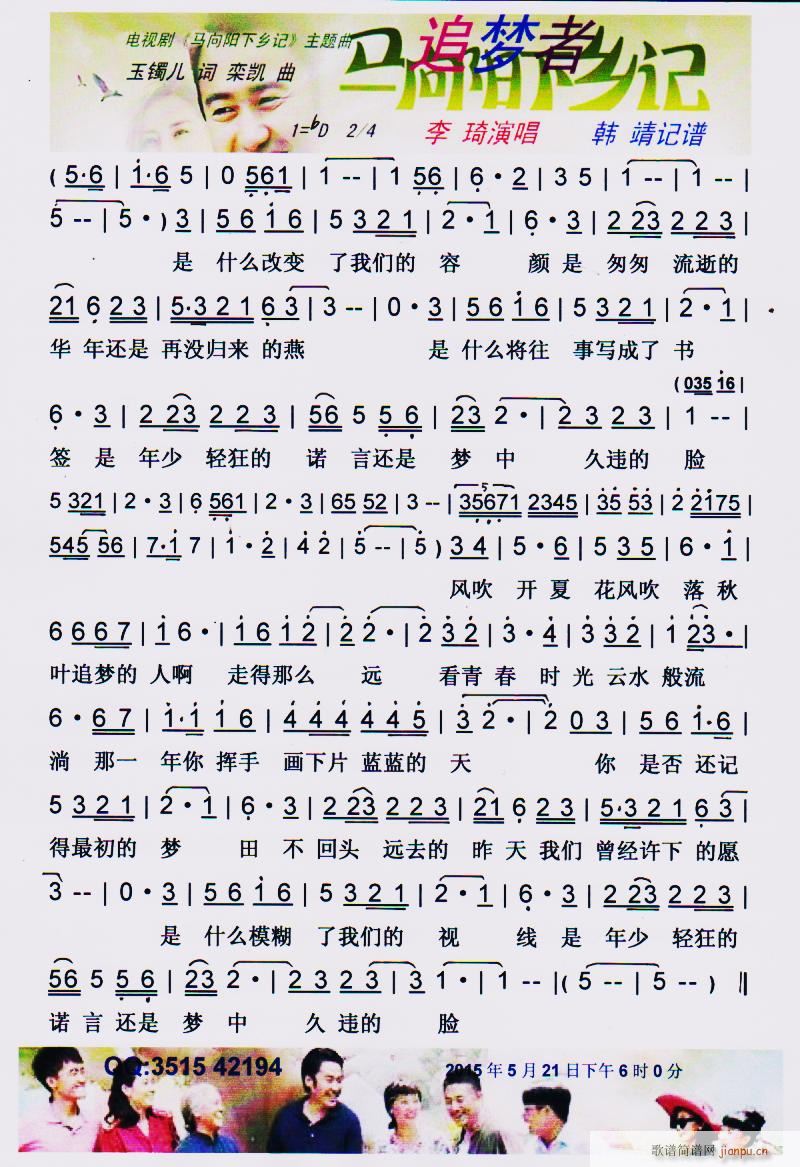 追梦者
电视剧《马向阳下乡记》主题曲
马向阳下乡记
玉镯儿 词 栾凯 曲
1=♭D 2/4 李 琦演唱 韩 靖记谱
(5·6 | 1·6 5 | 0 561 | 1 -- | 1 56 | 6·2 | 3 5 | 1 -- | 1 -- |
5 -- | 5·) 3 | 5 6 1 6 | 5 3 2 1 | 2·1 | 6·3 | 2 23 2 2 3 |
是 什么改变 了我们的 容 颜 是 匆匆 流逝的
21 6 2 3 | 5·3 2 1 6 3 | 3 -- | 0·3 | 5 6 1 6 | 5 3 2 1 | 2·1 |
华 年还是 再没归来 的燕 是 什么将往 事写成了 书
(035 16 |
6·3 | 2 23 2 2 3 | 56 5 5 6 | 23 2· | 2 3 2 3 | 1 -- |
签 是 年少 轻狂的 诺 言还是 梦 中 久违的 脸
5 321 | 2·3 | 6 561 | 2·3 | 65 52 | 3 -- | 35671 2345 | 35 53 | 2 2175 |
545 56 | 7·1 7 | 1·2 | 4 2 | 5 -- | 5) 3 4 | 5·6 | 5 3 5 | 6·1 |
风吹 开 夏 花风吹 落 秋
6 6 6 7 | 1 6· | 1 6 1 2 | 2 2· | 2 3 2 | 3·4 | 3 3 2 | 1 23· |
叶追梦的 人啊 走得那么 远 看青 春 时 光 云水 般流
6·6 7 | 1·1 1 6 | 4 4 4 4 4 5 | 3 2· | 2 0 3 | 5 6 1·6 |
淌 那一 年你 挥手 画下片 蓝蓝的 天 你 是否 还记
5 3 2 1 | 2·1 | 6·3 | 2 23 2 2 3 | 21 6 2 3 | 5·3 2 1 6 3 |
得最初的 梦 田 不 回头 远去的 昨 天我们 曾经许下 的愿
3 -- | 0·3 | 5 6 1 6 | 5 3 2 1 | 2·1 | 6·3 | 2 23 2 2 3 |
是 什么模糊 了我们的 视 线 是 年少 轻狂的
56 5 5 6 | 23 2· | 2 3 2 3 | 3 1· | 1 -- |( 5 -- | 5 -- ) ||
诺 言还是 梦 中 久 违的 脸
QQ:3515 42194 2015年5月21日下午6时0分
歌谱简谱网
jianpu.cn